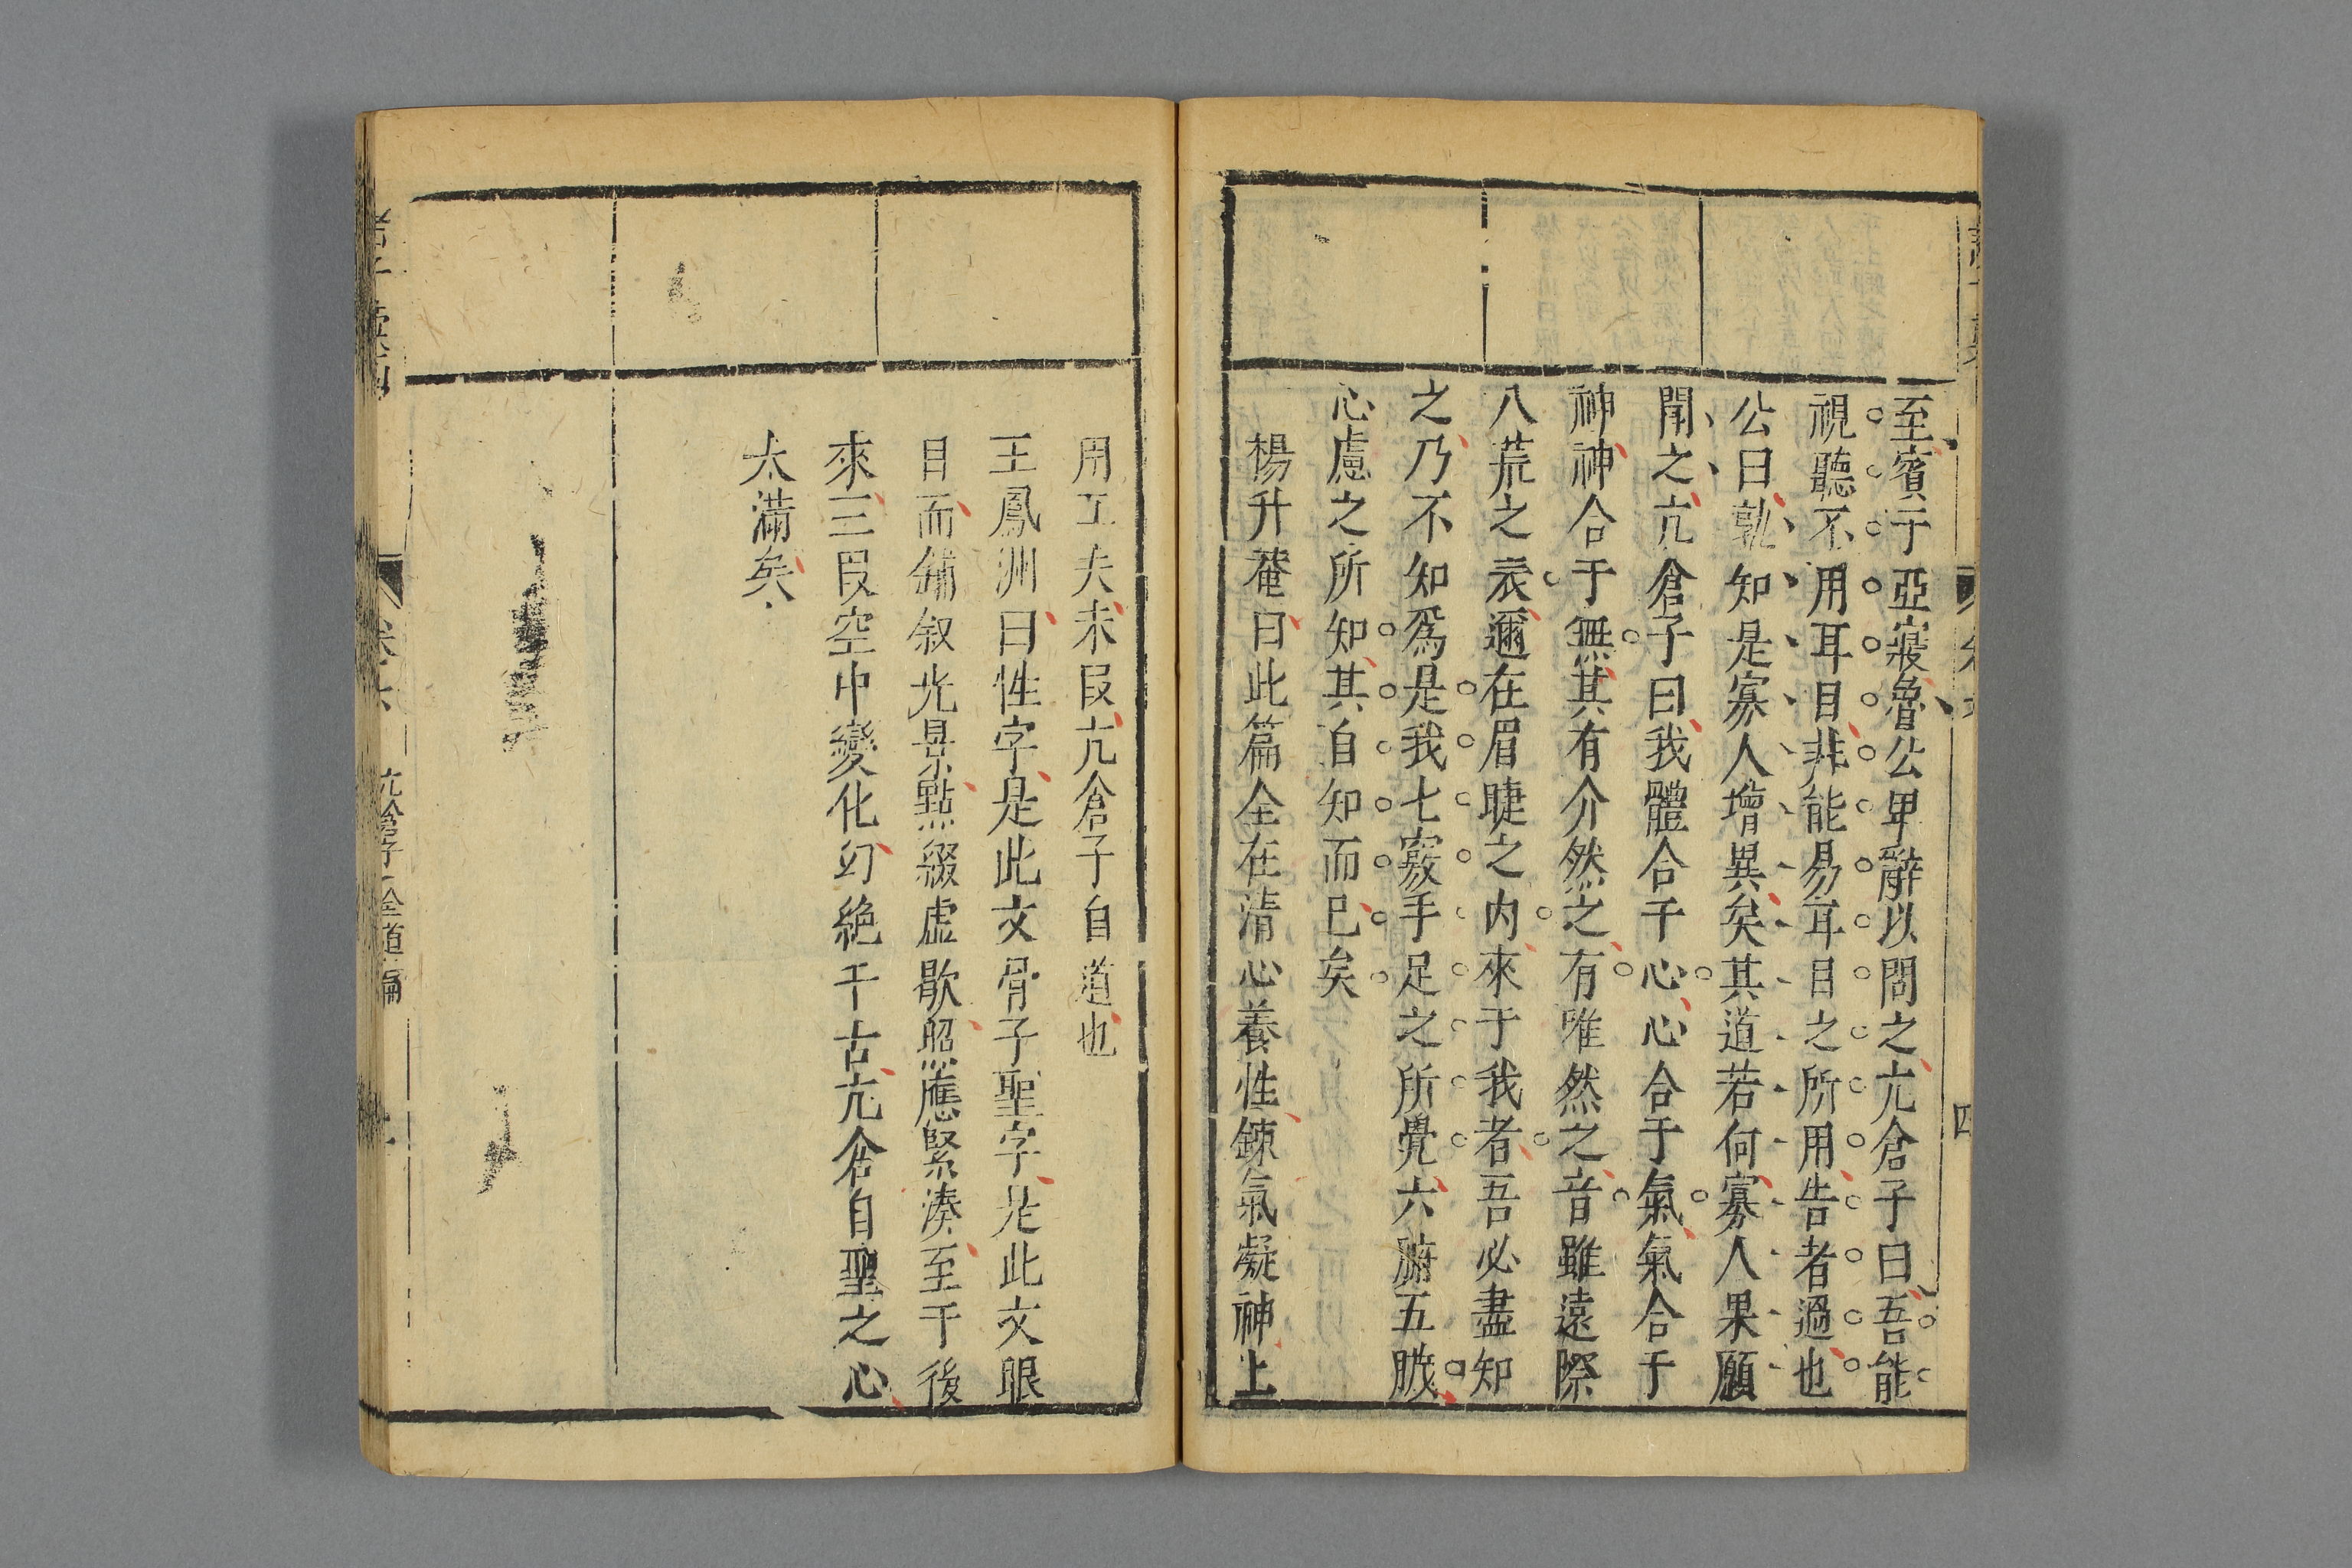 至賓于亞寢魯公卑辭以問之亢倉子曰吾能
視聽不用耳目非能易耳目之所用告者過也
公曰孰知是寡人增異矣其道若何寡人果願
聞之亢倉子曰我體合于心心合于氣氣合于
神神合于無其有介然之有唯然之音雖遠際
八荒之表邇在眉睫之内來于我者吾必盡知
之乃不知爲是我七竅手足之所覺六腑五臟
心慮之所知其自知而已矣
楊升菴曰此篇全在清心養性鍊氣凝神上
四
用工夫末段亢倉子自道也
王鳳洲曰性字是此文骨子聖字是此文眼
目而鋪叙光景點綴虛歇照應緊湊至于後
來三段空中變化幻絶千古亢倉自聖之心
太滿矣
卷六
亢倉子全道篇